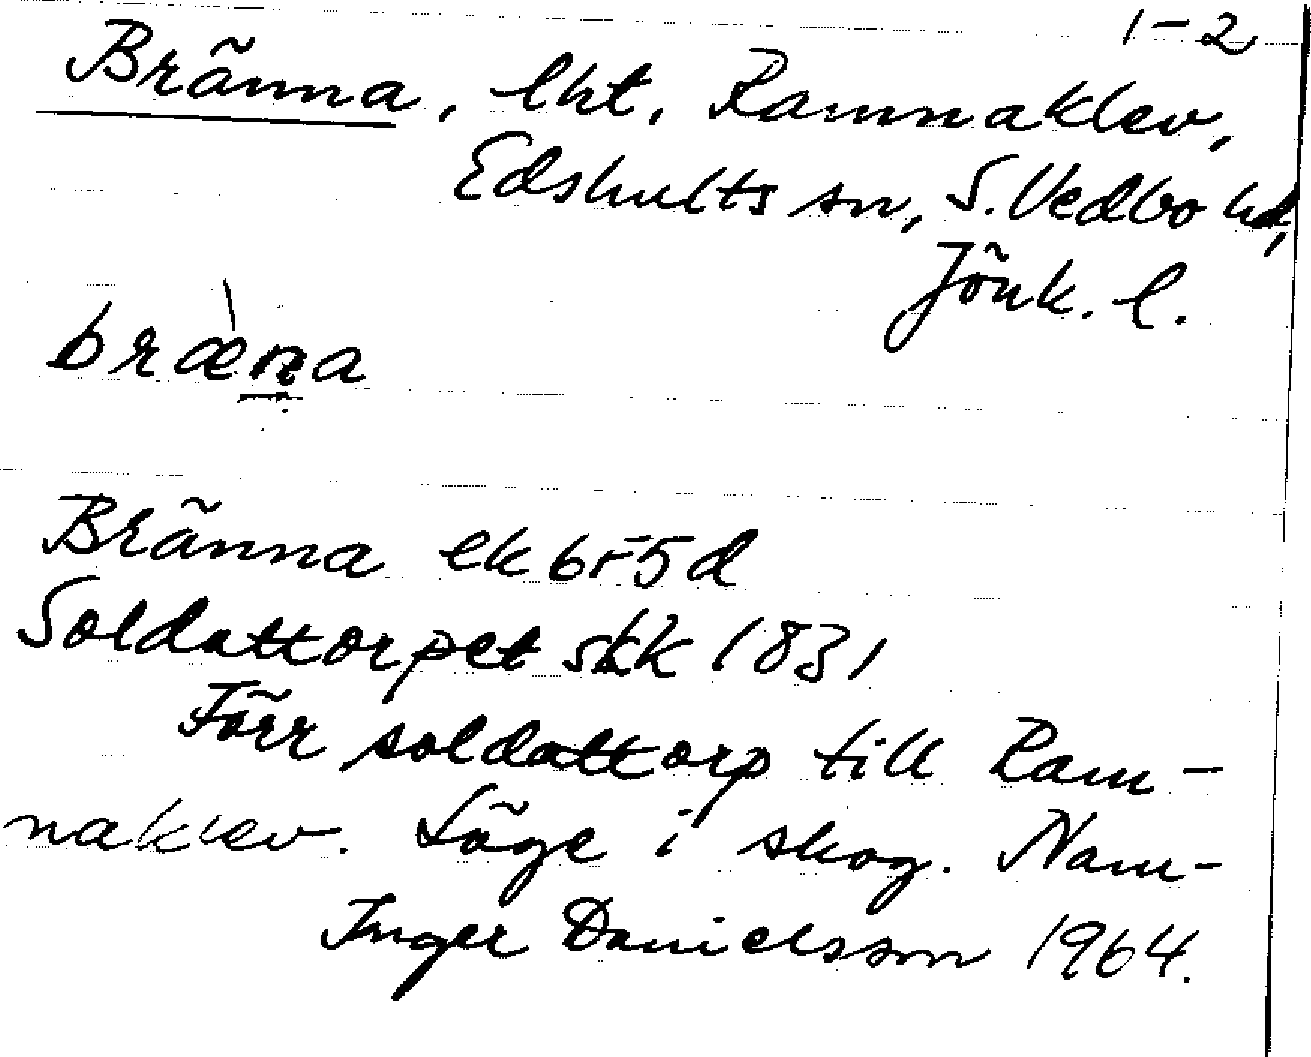 1-2
Bränna, lht, Ramnaklev,
Edshults sn, S. Vedbo hd,
Jönk. l.
bræ̀na
Bränna ek 6F5d
Soldattorpet skk 1831
Förr soldattorp till Ram-
naklev. Läge i skog. Nam-
Inger Danielsson 1964.